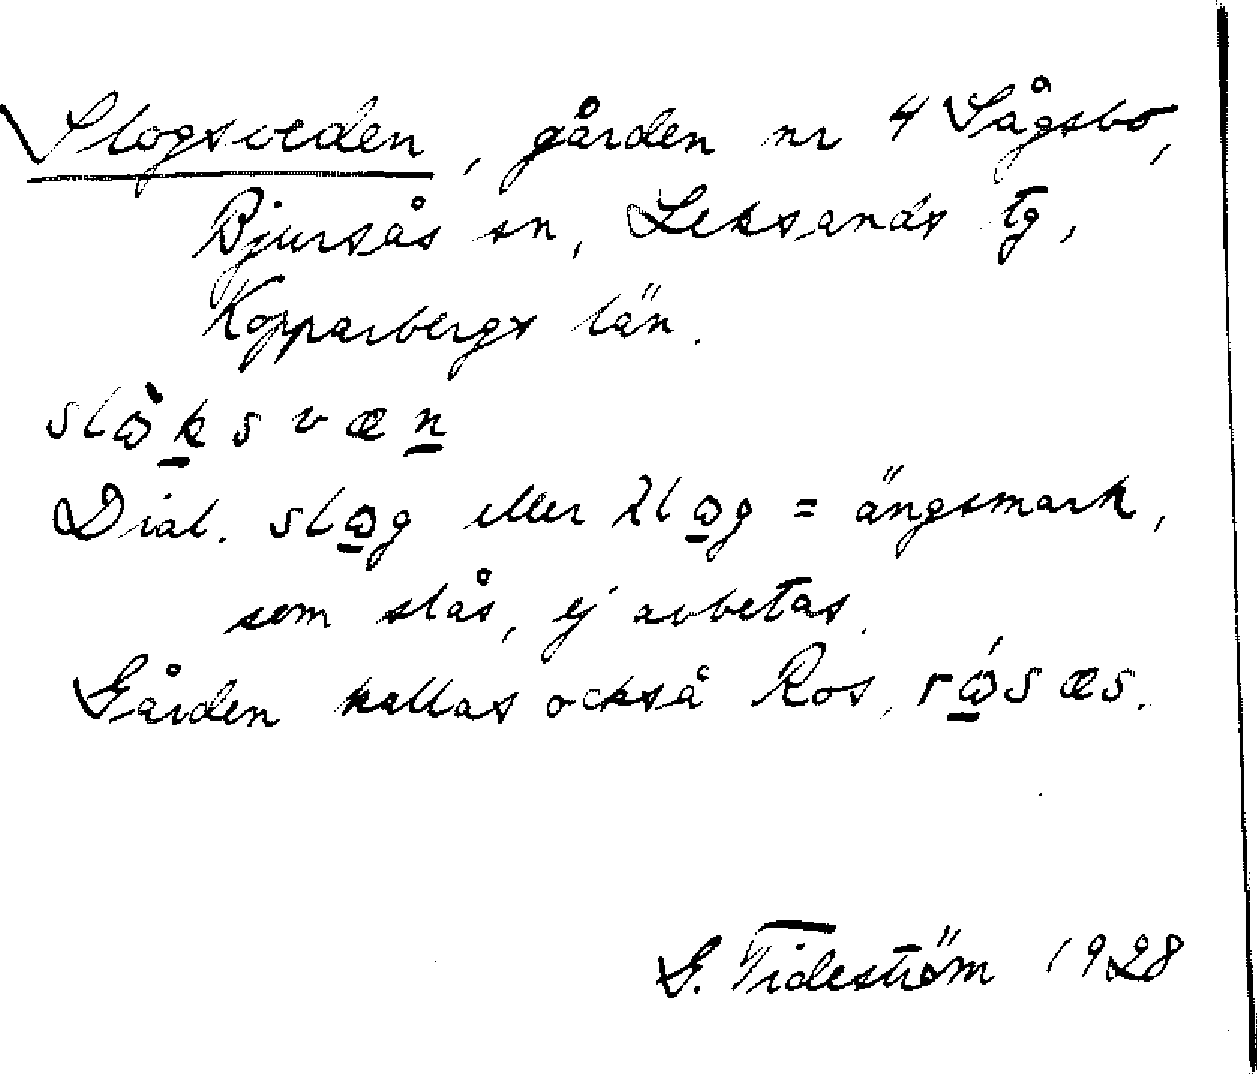 Slogsveden, gården nr 4 Sågsbo,
Bjursås sn, Leksands tg,
Kopparbergs län.
slὼksvæn
Dial. slωg eller λlωg = ängsmark,
som slås, ej avbetas.
Gården kallas också Ros, rώsæs.
G. Tideström 1928